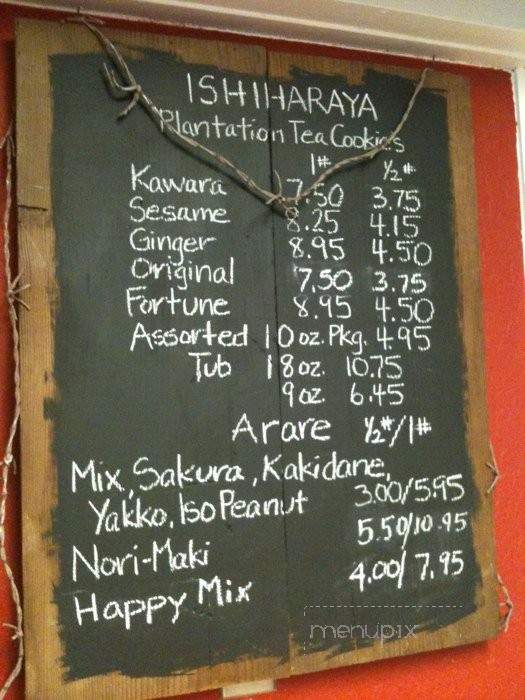 ISHIHARAYA
Plantation Tea Cookies
1# ½#
Kawara 7.50 3.75
Sesame 8.25 4.15
Ginger 8.95 4.50
Original 7.50 3.75
Fortune 8.95 4.50
Assorted 10oz. Pkg. 4.95
Tub 18oz. 10.75
9oz. 6.45
Arare ½#/1#
Mix, Sakura, Kakidane,
Yakko, Iso Peanut 3.00/5.95
Nori-Maki 5.50/10.95
Happy Mix 4.00/7.95
menupix